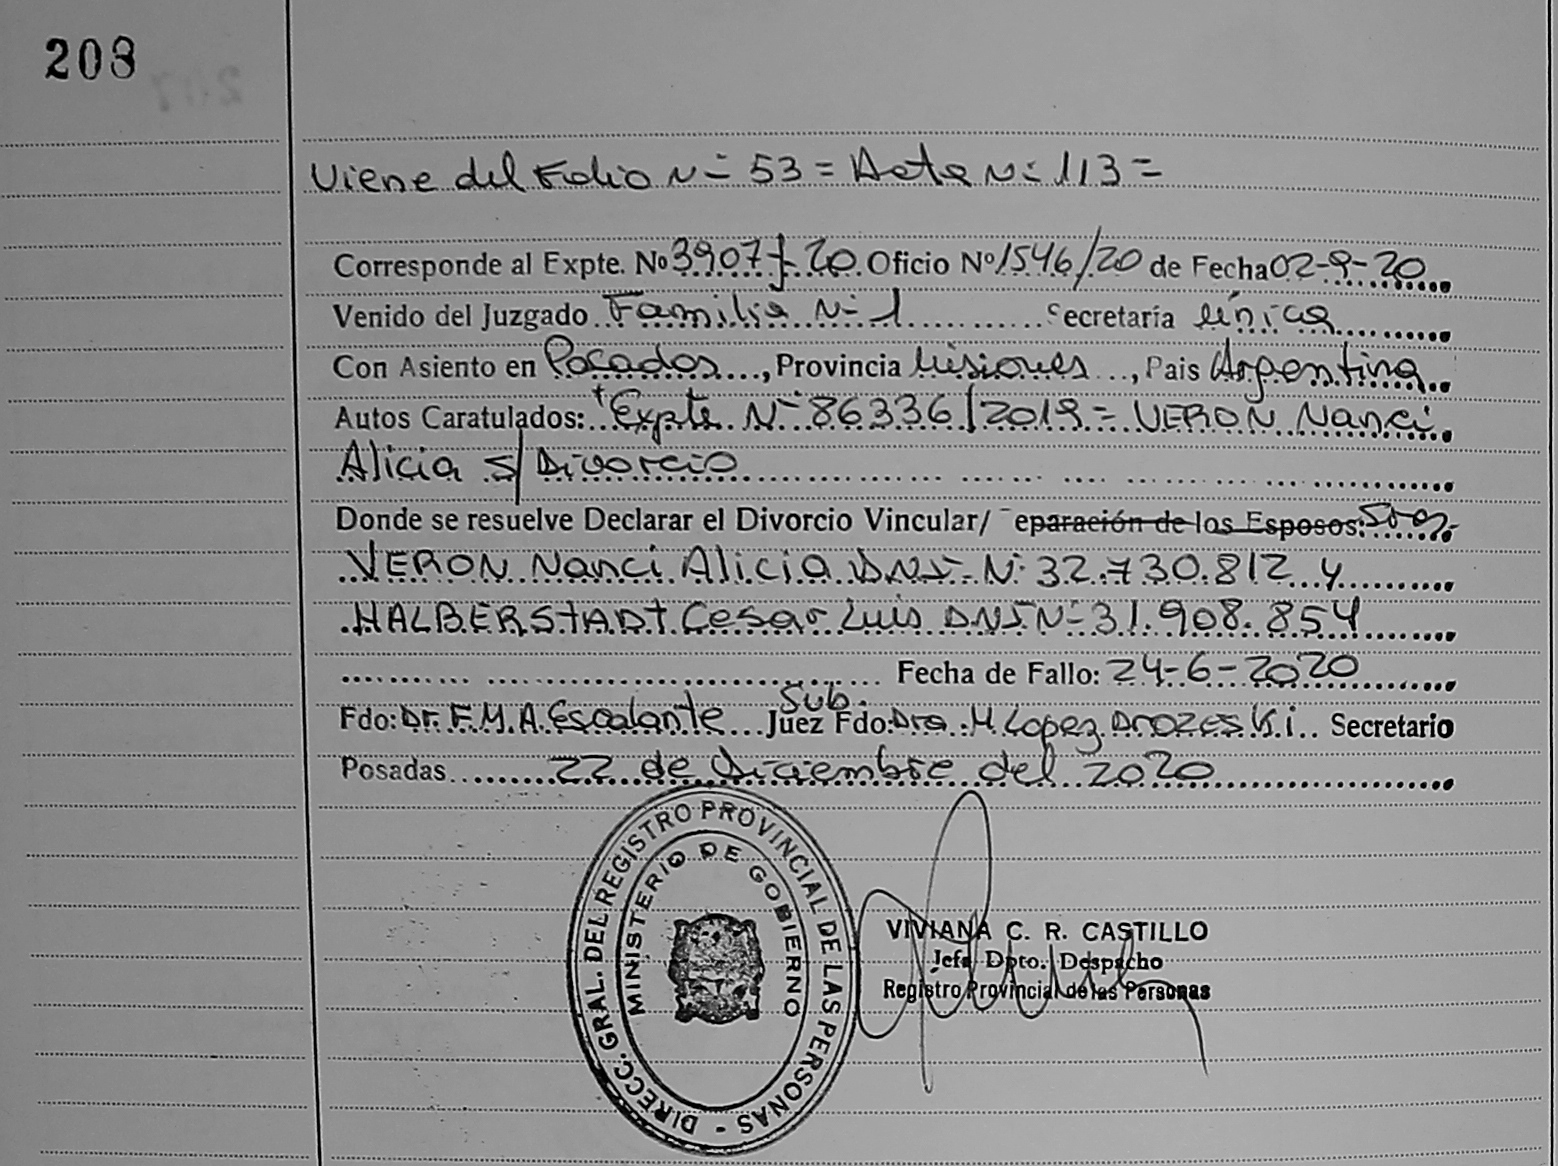 208
Viene del Folio Nº 53 = Acta Nº 113 =
Corresponde al Expte. Nº 3907 f 20 Oficio Nº 1546/20 de Fecha 02-9-20
Venido del Juzgado Familia Nº 1 Secretaría única
Con Asiento en Posadas, Provincia Misiones, Pais Argentina
Autos Caratulados: "Expte. Nº 86336/2019 = VERON Nanci
Alicia s/ Divorcio
Donde se resuelve Declarar el Divorcio Vincular/ eparación de los Esposos:
VERON Nanci Alicia DNI. Nº 32.730.812 y
HALBERSTADT Cesar Luis DNI Nº 31.908.854
Fecha de Fallo: 24-6-2020
Sub.
Fdo: Dr. F.M.A. Escalante Juez Fdo: Dra. M Lopez Drozeski Secretario
Posadas 22 de Diciembre del 2020
DIRECC. GRAL. DEL REGISTRO PROVINCIAL DE LAS PERSONAS -
MINISTERIO DE GOBIERNO
VIVIANA C. R. CASTILLO
Jefa Dpto. Despacho
Registro Provincial de las Personas